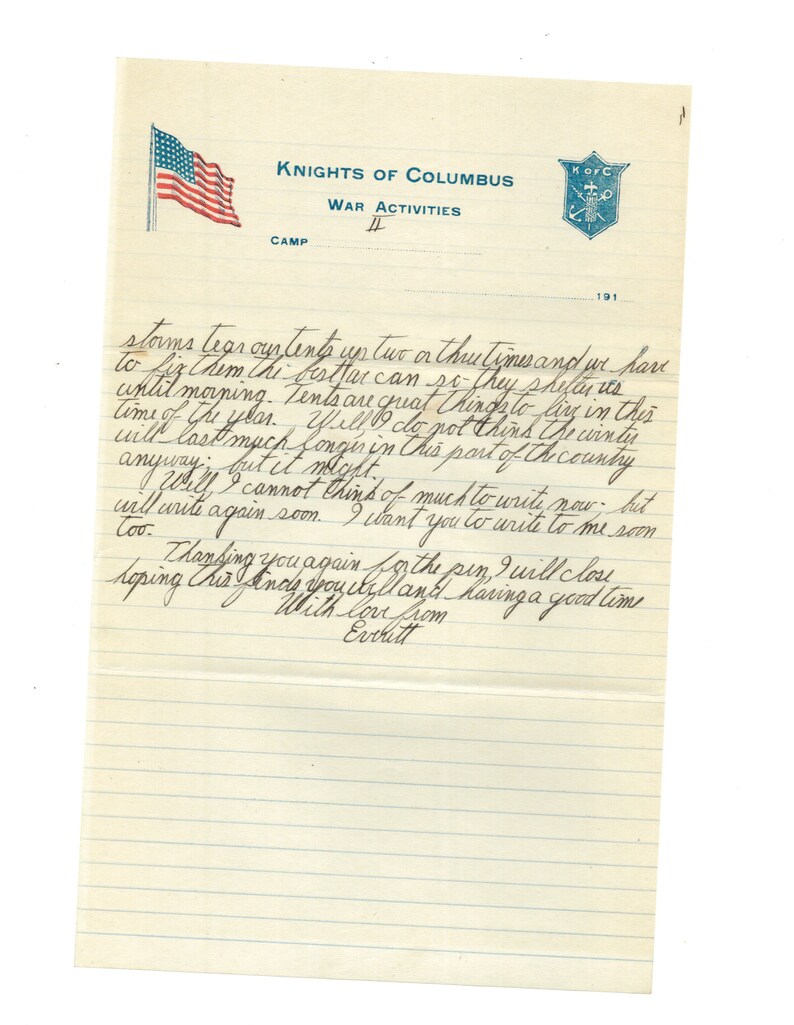 K OF C
KNIGHTS OF COLUMBUS
WAR ACTIVITIES
II
CAMP
191
storms tear our tents up two or three times and we have
to fix them the best we can so they shelter us
until morning. Tents are great things to live in this
time of the year. Well I do not think the winter
will last much longer in this part of the country
anyway; but it might.
Well, I cannot think of much to write now; but
will write again soon. I want you to write to me soon
too.
Thanking you again for the pen I will close
hoping this finds you well and having a good time
With love from
Everett